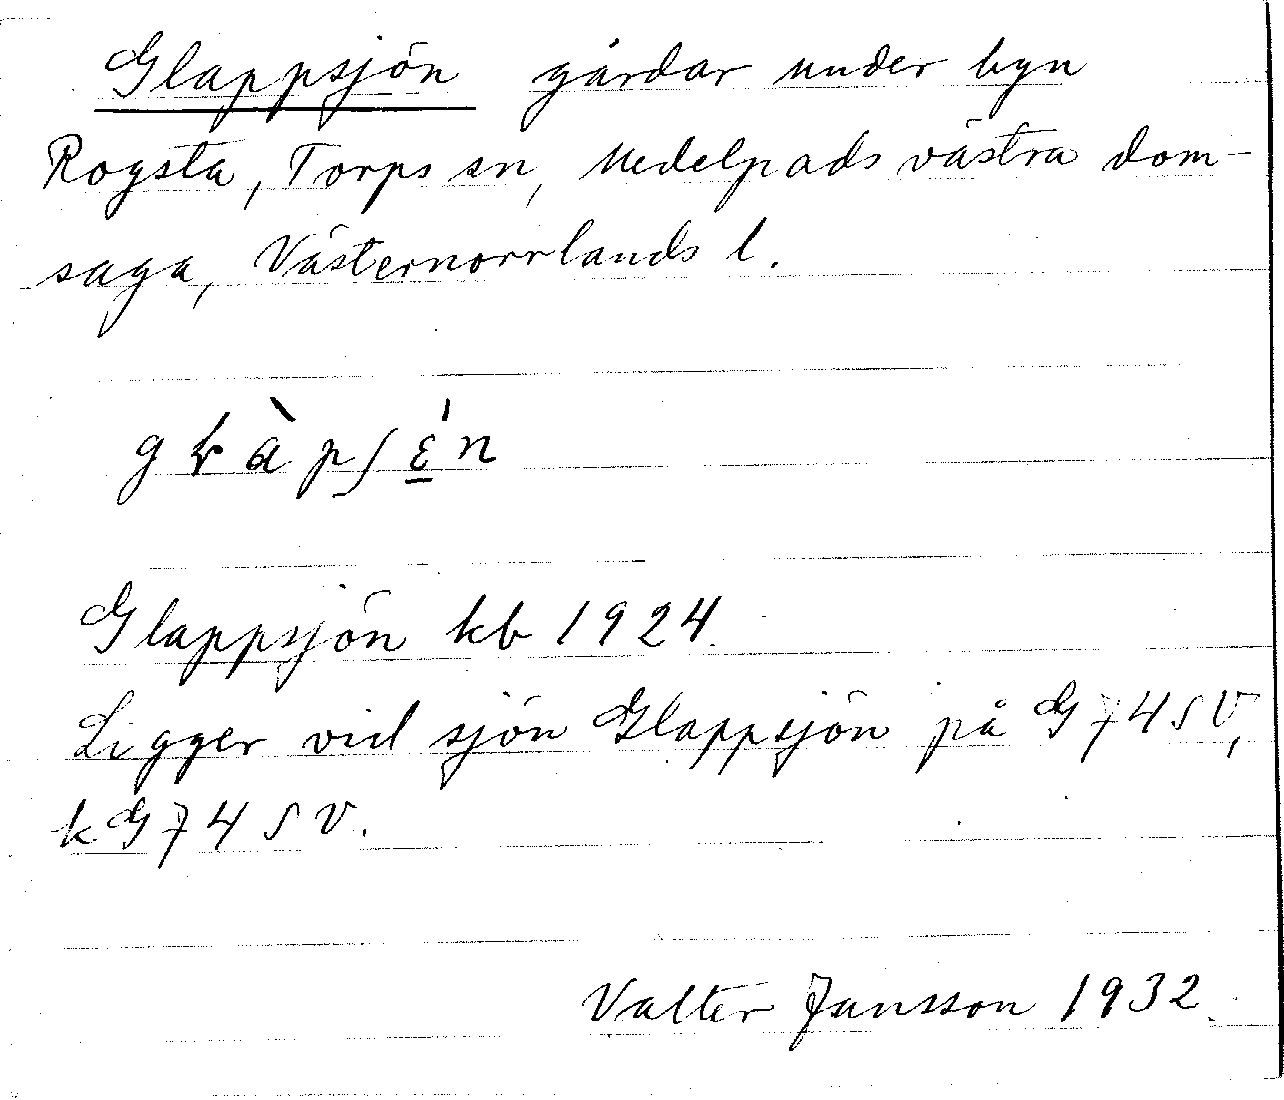 Glappsjön gårdar under byn
Rogsta, Torps sn, Medelpads västra dom-
saga, Västernorrlands l.
Glappsjön kb 1924.
Ligger vid sjön Glappsjön på G74SV,
kG74SV.
Valter Jansson 1932.